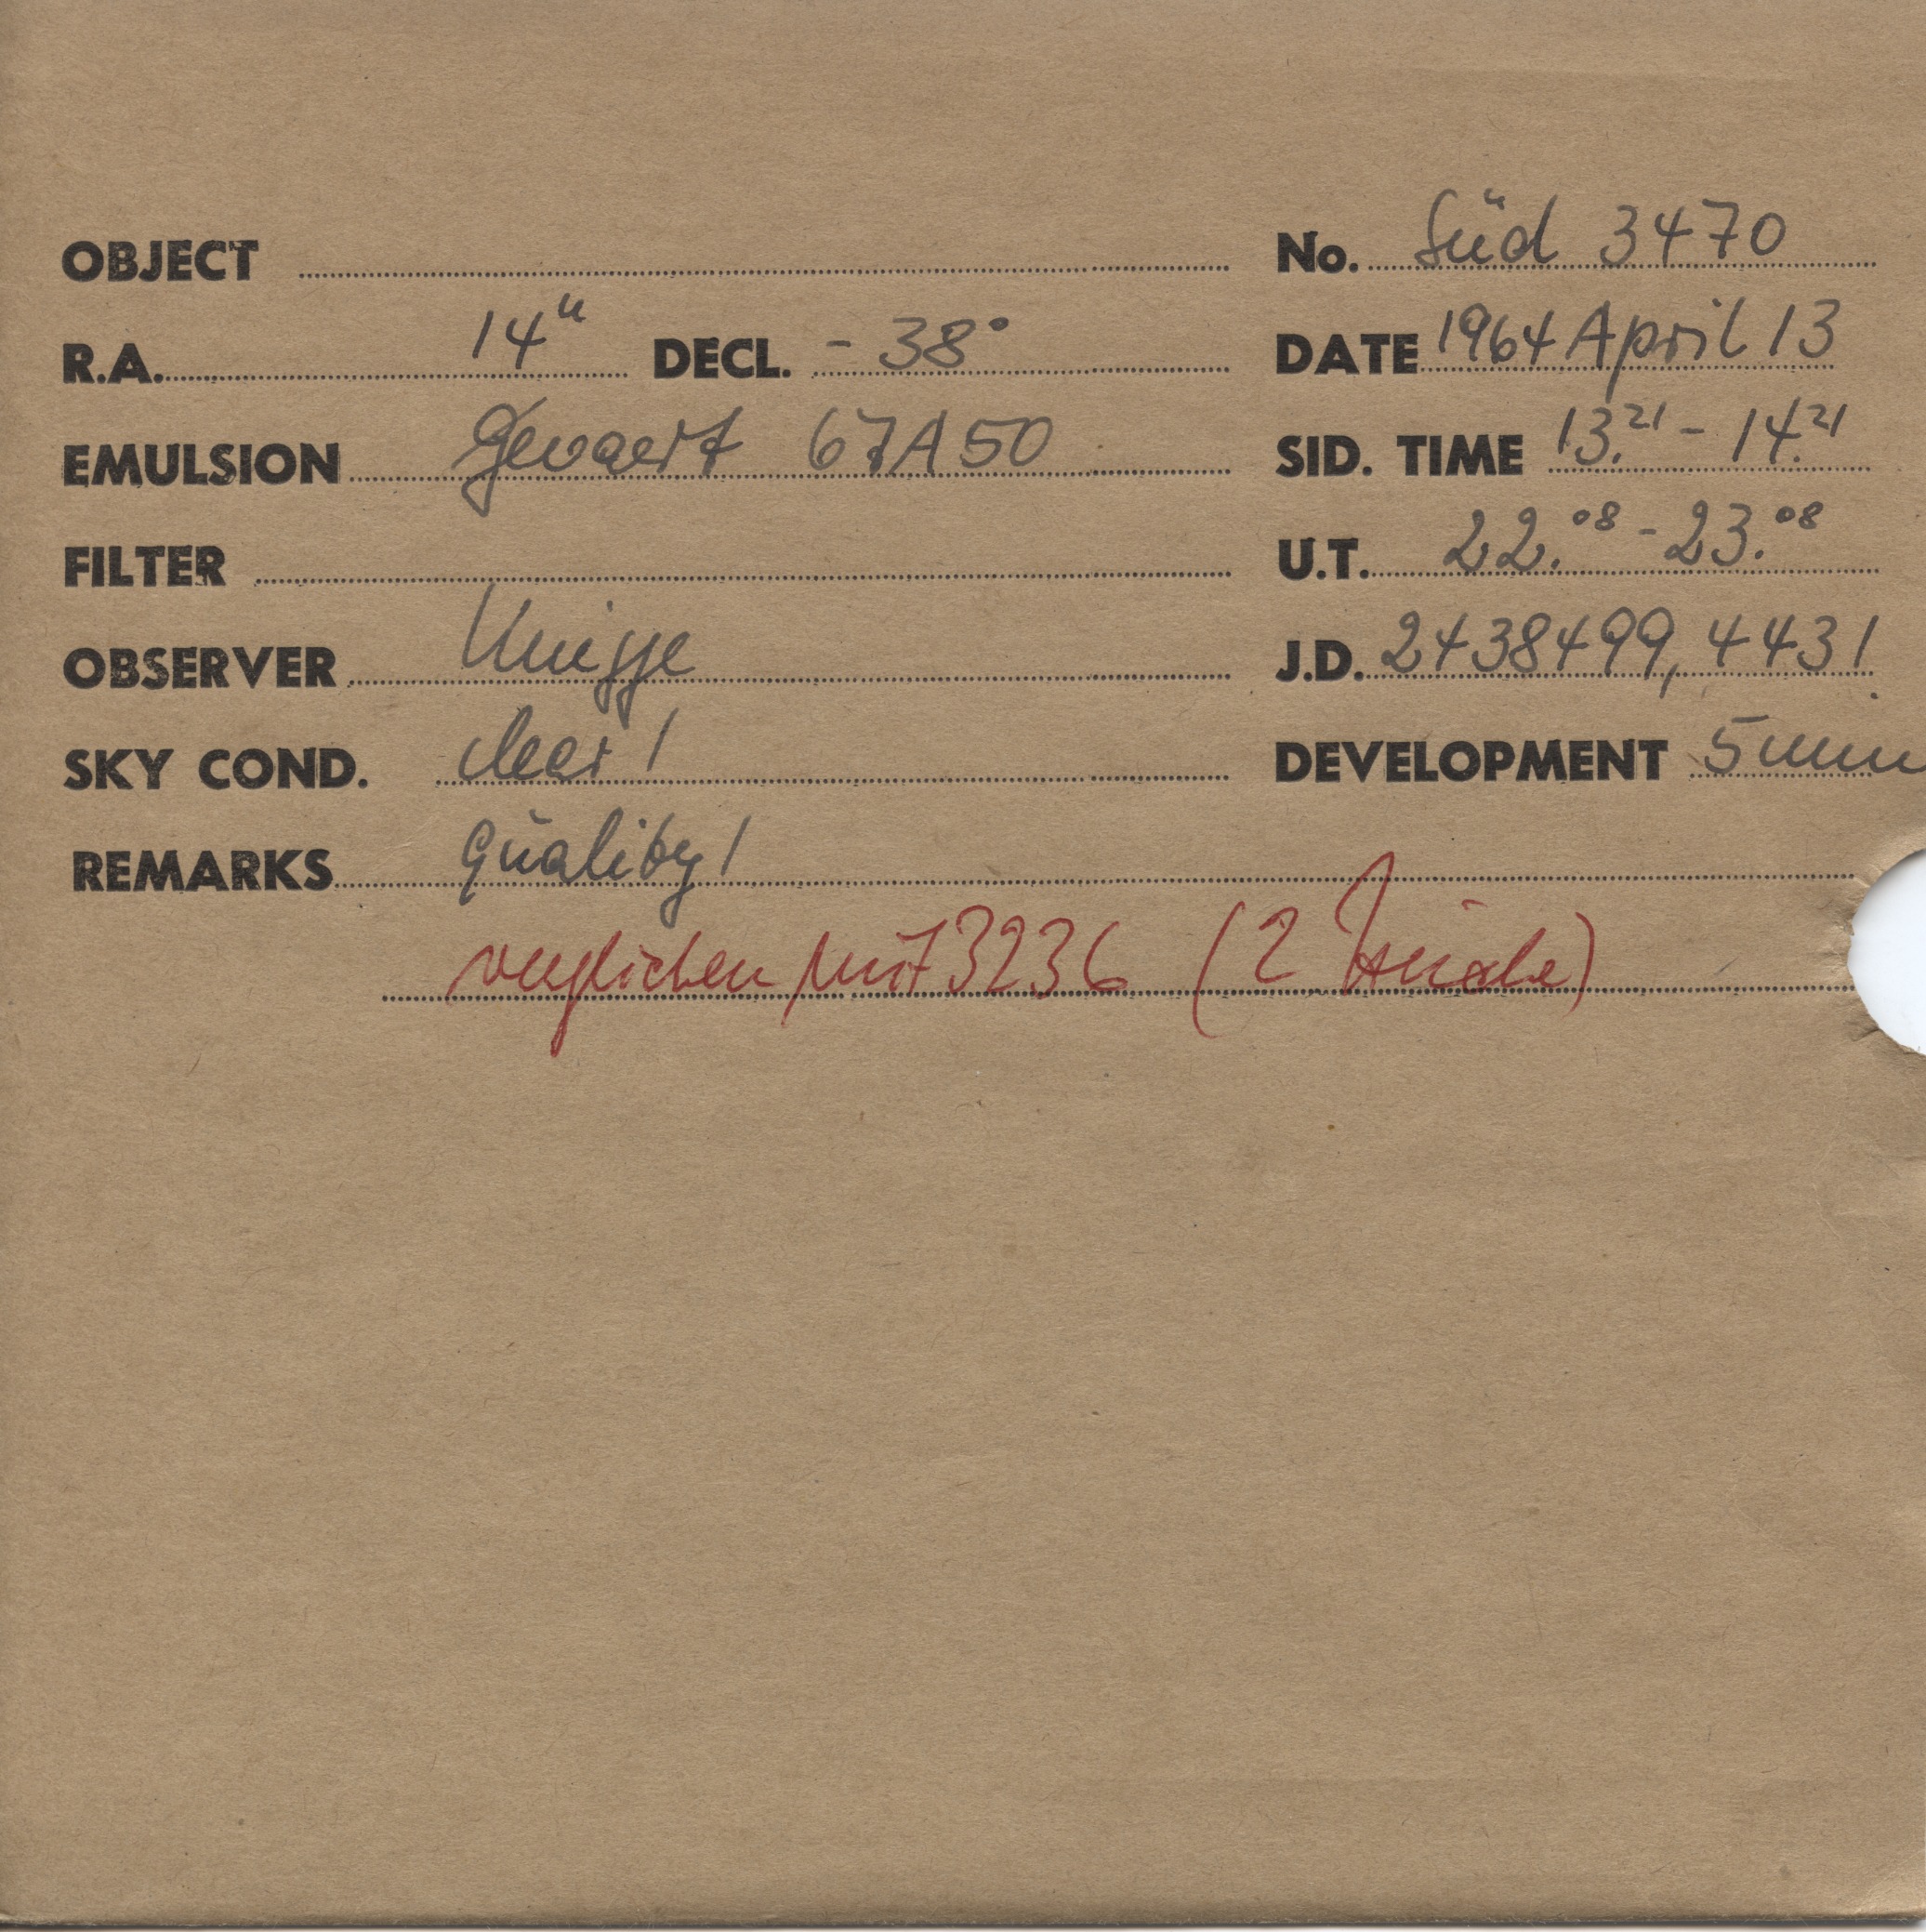 OBJECT No. Süd 3470
R.A. 14h DECL. - 38° DATE 1964 April 13
EMULSION Gevaert 67A50 SID. TIME 13.21 - 14.21
FILTER U.T. 22.08 - 23.08
OBSERVER Knigge J.D. 2438499,4431
SKY COND. clear 1 DEVELOPMENT 5 min
REMARKS Quality 1
verglichen mit 3236 (2 Funde)